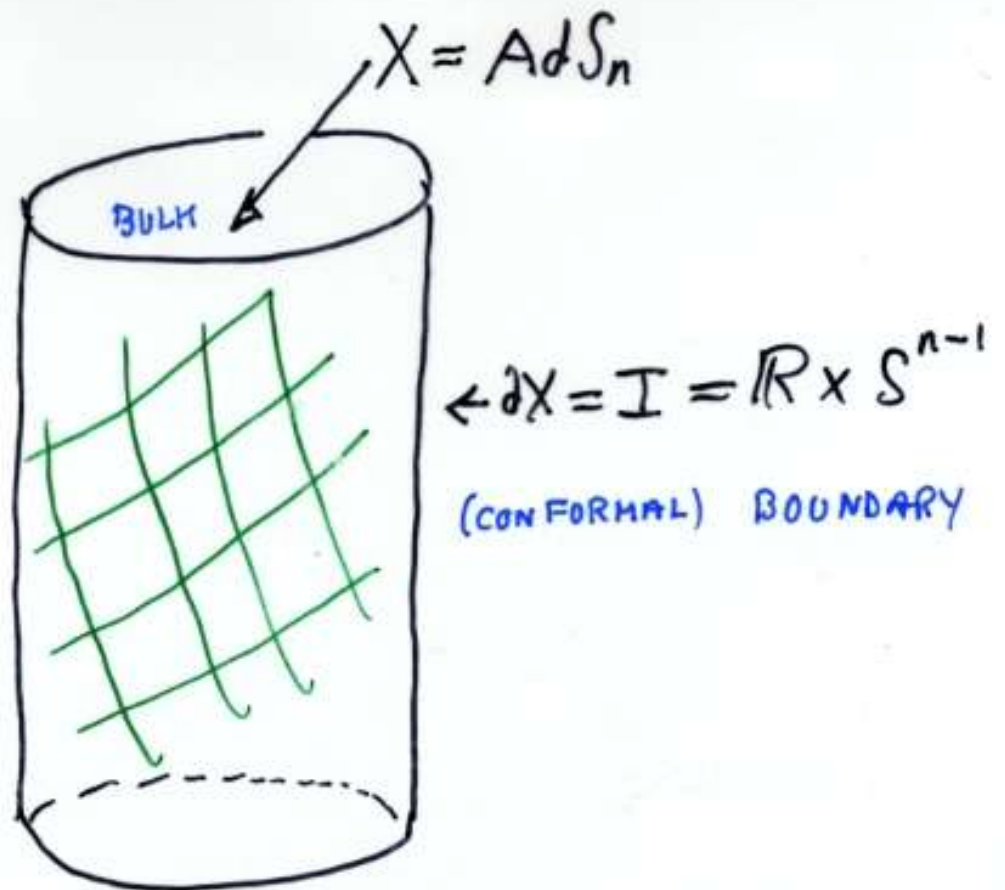 X = AdSn
BULK
←∂X = I = ℝ × S^{n-1}
(CONFORMAL) BOUNDARY